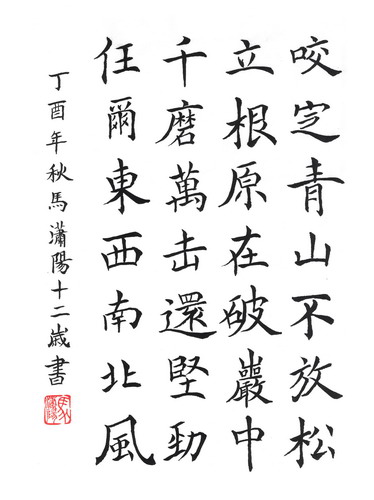 咬定青山不放松
立根原在破巖中
千磨萬击還堅勁
任爾東西南北風
丁酉年秋馬瀟陽十二歲書